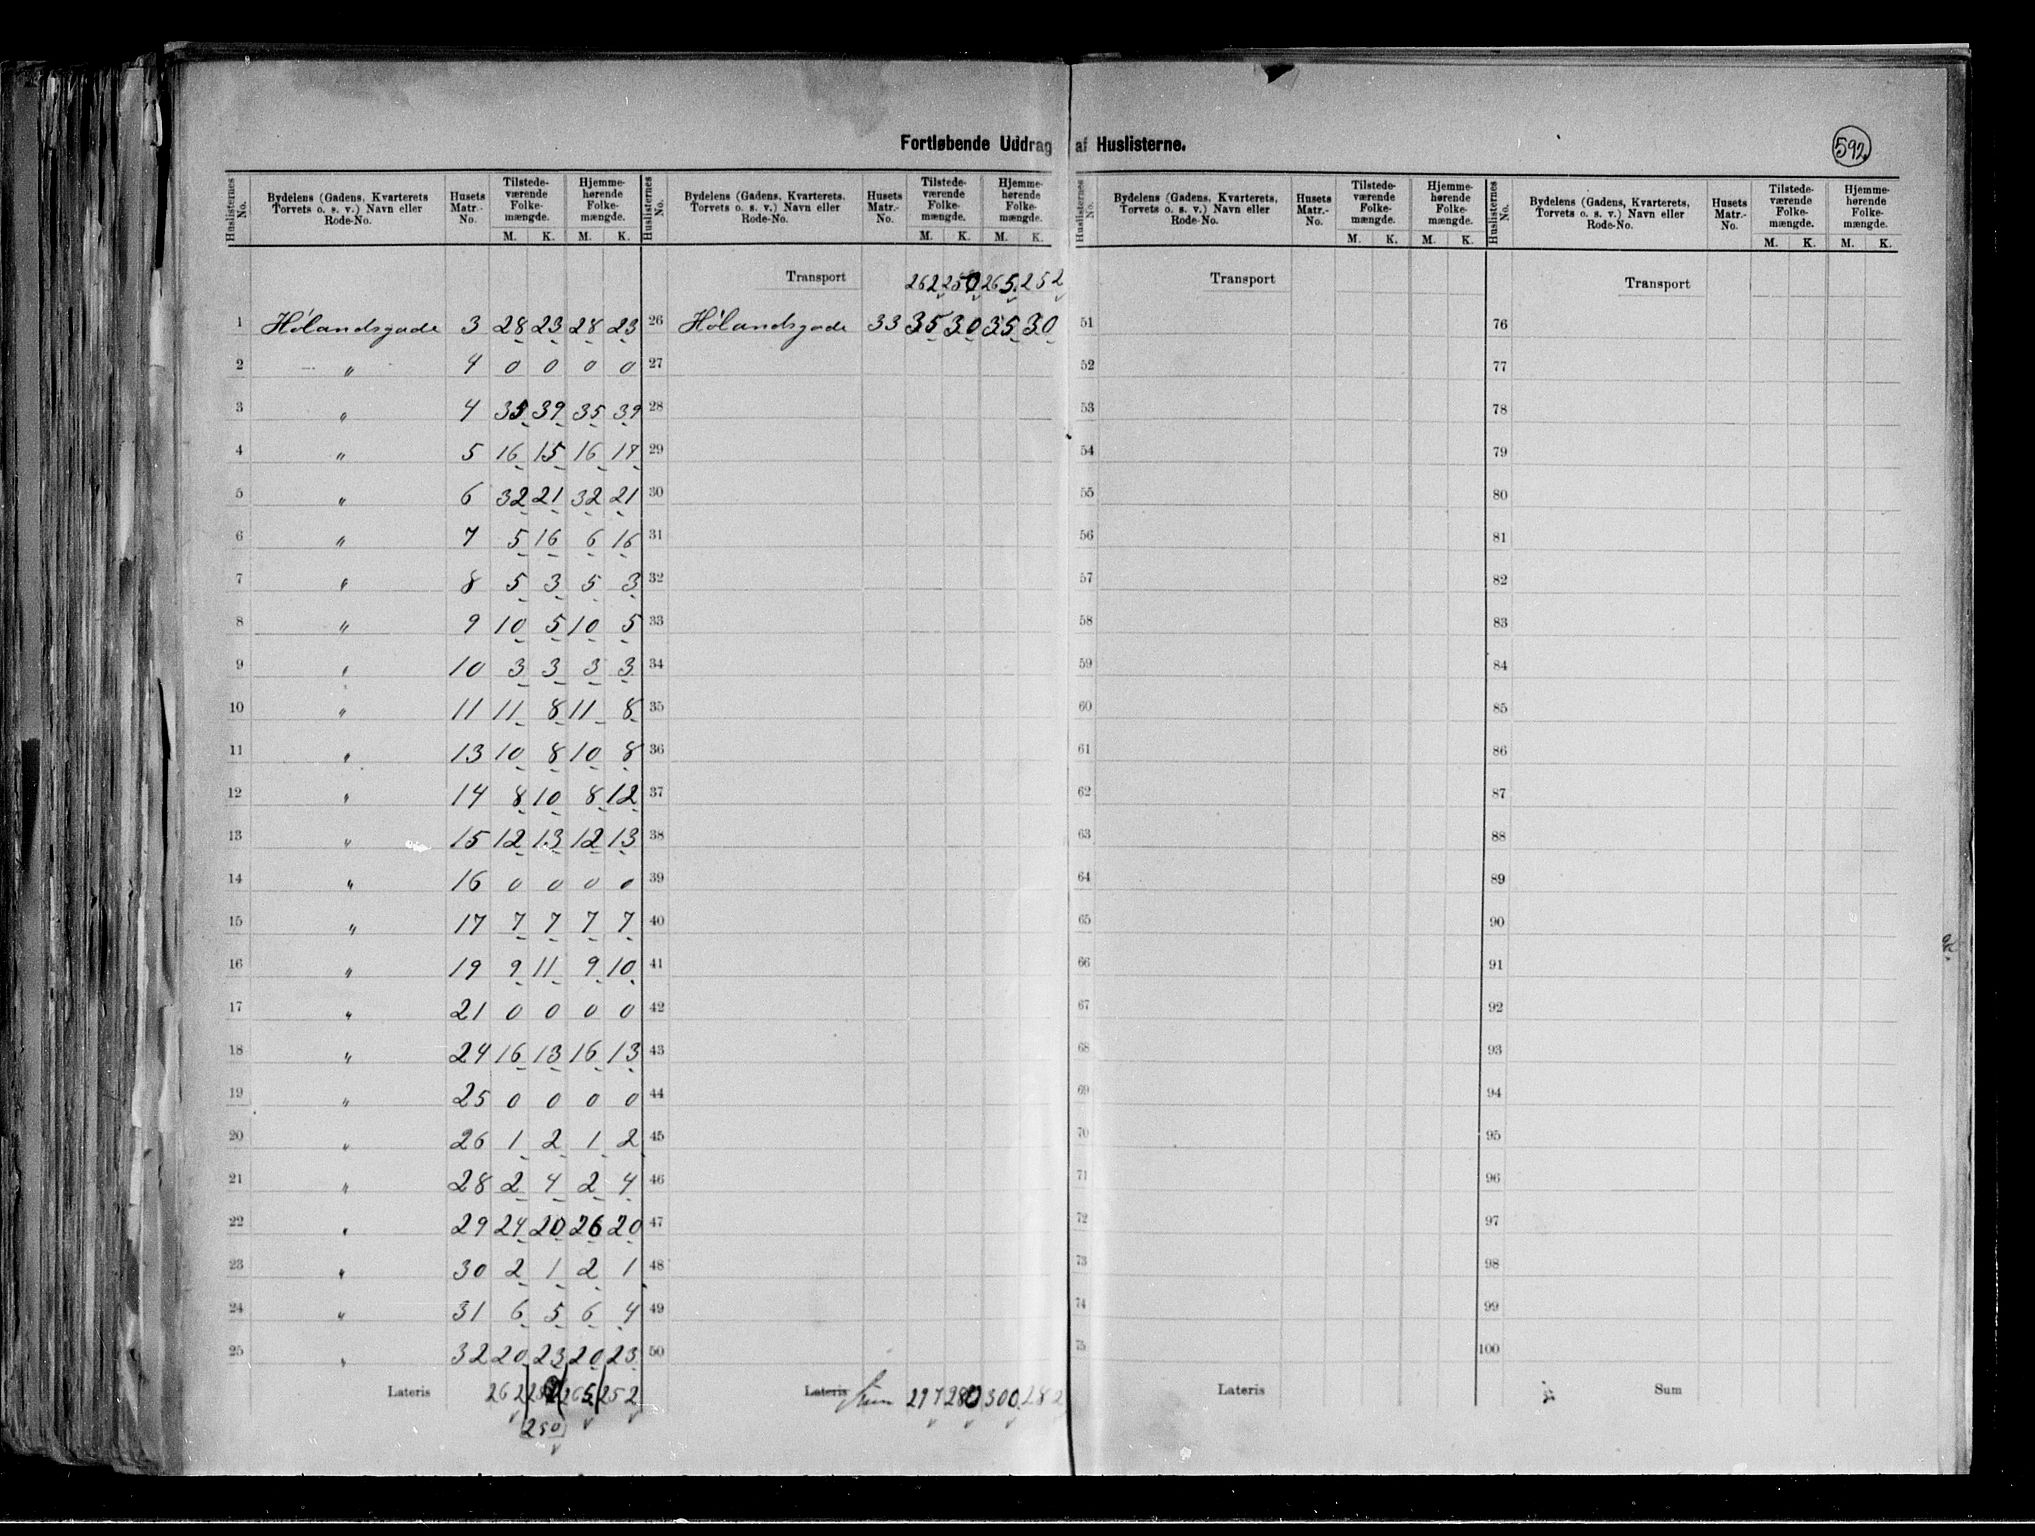 Fortløbende Uddrag af Huslisterne.
592.
Huslisternes No. Bydelens (Gadens, Kvarterets Torvets o. s. v.) Navn eller Rode-No. Husets Matr.-No. Tilstede-værende Folke-mængde. M. K. Hjemme-hørende Folke-mængde. M. K.
Huslisternes No. Bydelens (Gadens, Kvarterets, Torvets o. s. v.) Navn eller Rode-No. Husets Matr.-No. Tilstede-værende Folke-mængde. M. K. Hjemme-hørende Folke-mængde. M. K.
Huslisternes No. Bydelens (Gadens, Kvarterets, Torvets o. s. v.) Navn eller Rode-No. Husets Matr.-No. Tilstede-værende Folke-mængde. M. K. Hjemme-hørende Folke-mængde. M. K.
Huslisternes No. Bydelens (Gadens, Kvarterets, Torvets o. s. v.) Navn eller Rode-No. Husets Matr.-No. Tilstede-værende Folke-mængde. M. K. Hjemme-hørende Folke-mængde. M. K.
Transport 262 250 265 252 Transport Transport
1 Hølandsgade 3 28 23 28 23 26 Hølandsgade 33 35 30 35 30 51 76
2 " 4 0 0 0 0 27 52 77
3 " 4 35 39 35 39 28 53 78
4 " 5 16 15 16 17 29 54 79
5 " 6 32 21 32 21 30 55 80
6 " 7 5 16 6 16 31 56 81
7 " 8 5 3 5 3 32 57 82
8 " 9 10 5 10 5 33 58 83
9 " 10 3 3 3 3 34 59 84
10 " 11 11 8 11 8 35 60 85
11 " 13 10 8 10 8 36 61 86
12 " 14 8 10 8 12 37 62 87
13 " 15 12 13 12 13 38 63 88
14 " 16 0 0 0 0 39 64 89
15 " 17 7 7 7 7 40 65 90
16 " 19 9 11 9 10 41 66 91
17 " 21 0 0 0 0 42 67 92
18 " 24 16 13 16 13 43 68 93
19 " 25 0 0 0 0 44 69 94
20 " 26 1 2 1 2 45 70 95
21 " 28 2 4 2 4 46 71 96
22 " 29 24 20 26 20 47 72 97
23 " 30 2 1 2 1 48 73 98
24 " 31 6 5 6 4 49 74 99
25 " 32 20 23 20 23 50 75 100
Lateris 262 265 252 Lateris Sum 297 280 300 282 Lateris Sum
250